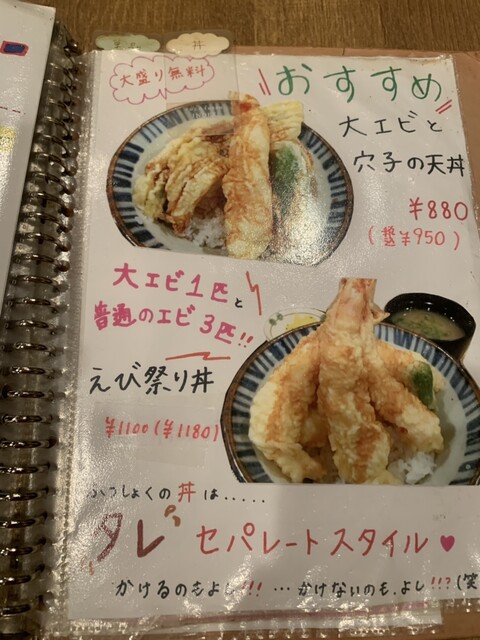 大盛り無料
おすすめ
大エビと
穴子の天丼
¥880
(税込¥950)
大エビ1匹と
普通のエビ3匹!!
えび祭り丼
¥1100(¥1180)
ふっしょくの丼は.....
タレ セパレートスタイル♥
かけるのもよし!!! …かけないのも、よし!!?(笑